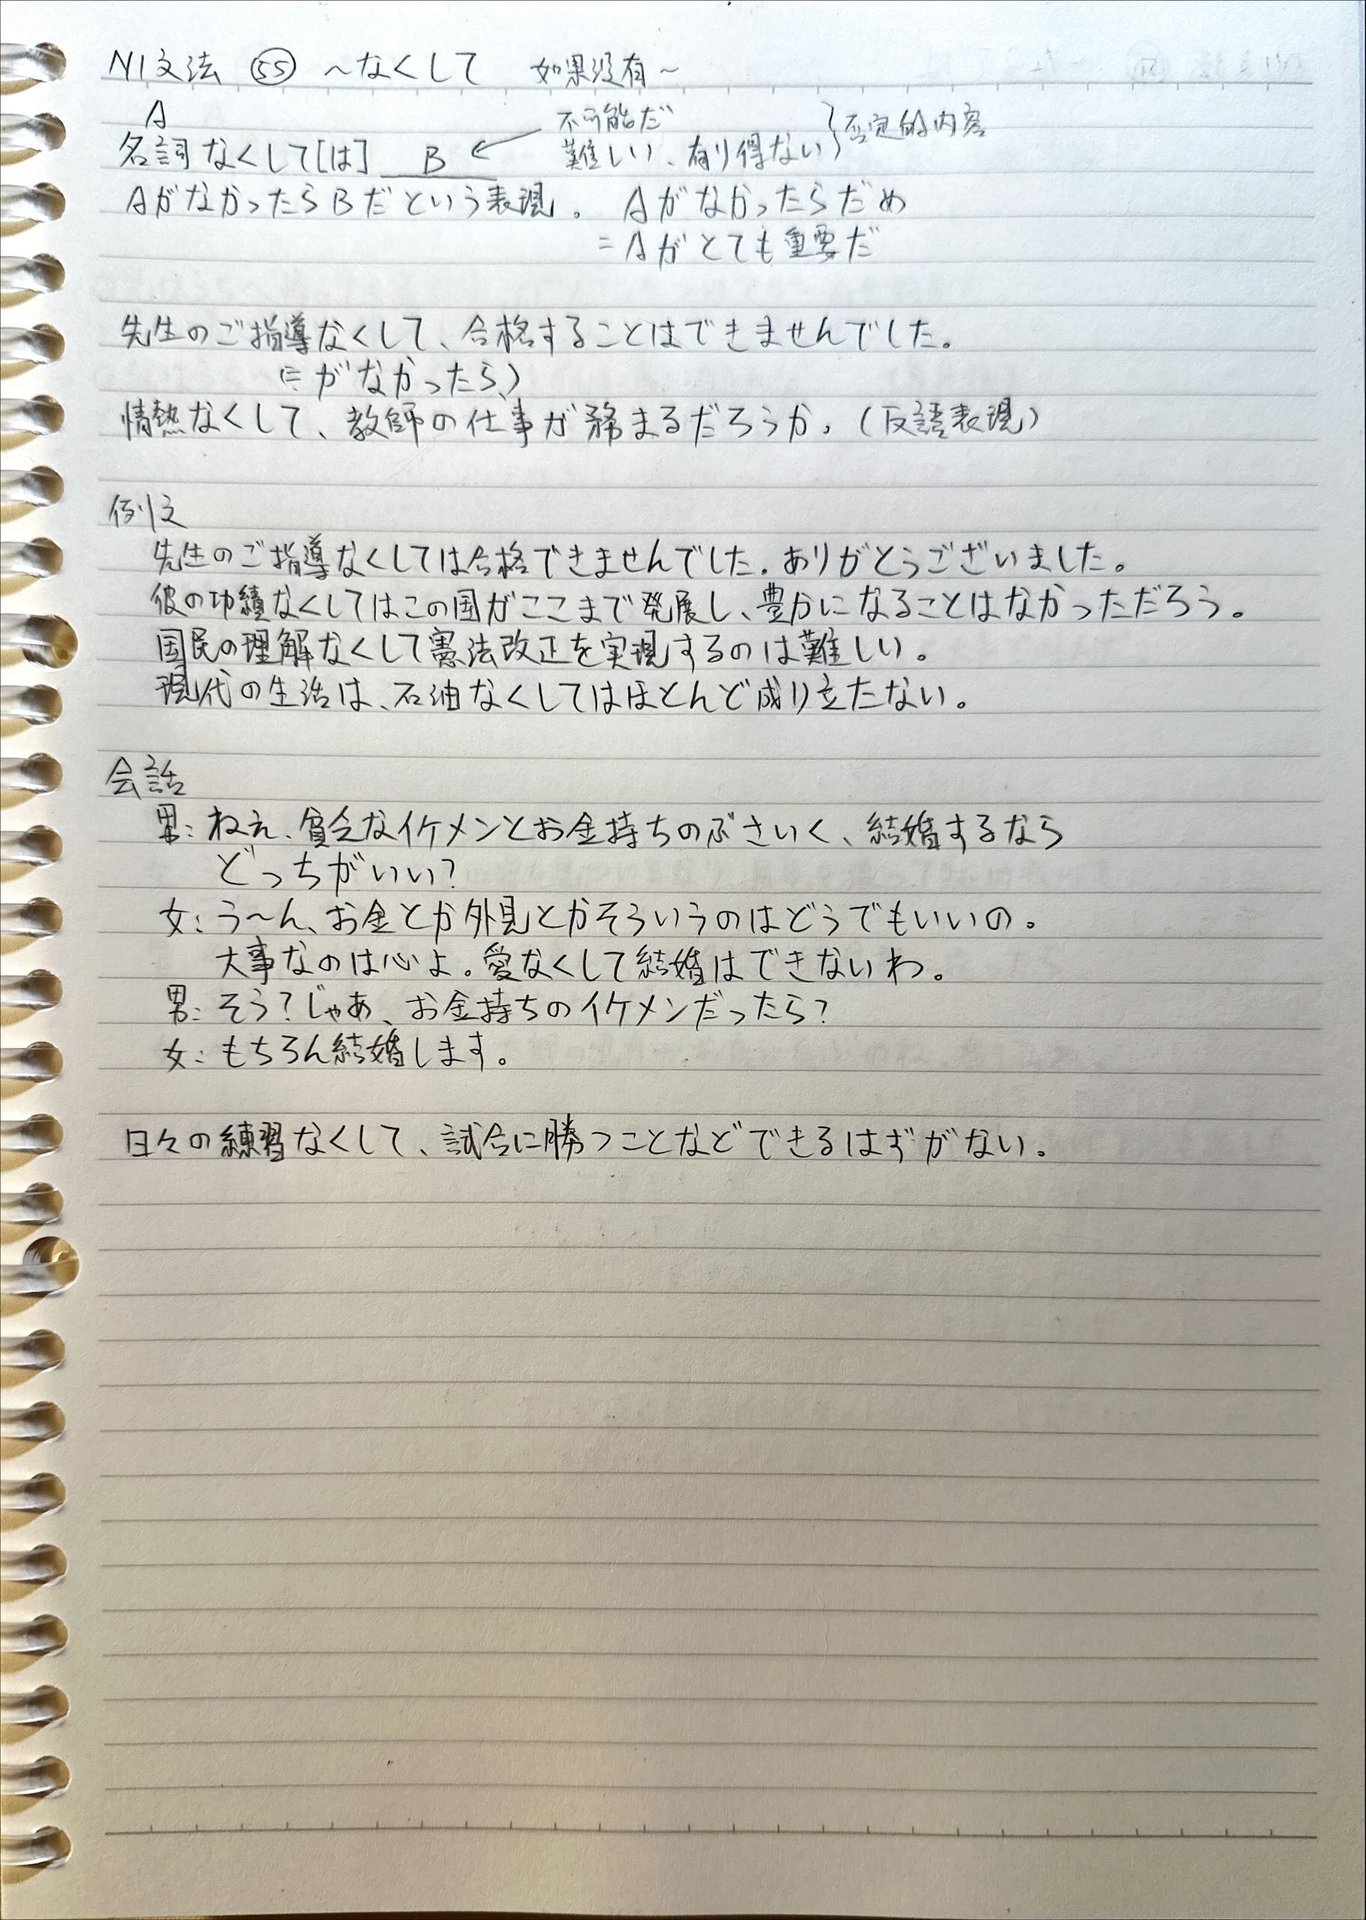 N1文法 ㊺ ~なくして 如果没有~
A
名詞なくして[は] B ← 不可能だ
難しい、有り得ない } 否定的内容
AがなかったらBだという表現。 Aがなかったらだめ
=Aがとても重要だ
先生のご指導なくして、合格することはできませんでした。
(=がなかったら)
情熱なくして、教師の仕事が務まるだろうか。(反語表現)
例文
先生のご指導なくしては合格できませんでした。ありがとうございました。
彼の功績なくしてはこの国がここまで発展し、豊かになることはなかっただろう。
国民の理解なくして憲法改正を実現するのは難しい。
現代の生活は、石油なくしてはほとんど成り立たない。
会話
男:ねえ、貧乏なイケメンとお金持ちのぶさいく、結婚するなら
どっちがいい?
女:う~ん、お金とか外見とかそういうのはどうでもいいの。
大事なのは心よ。愛なくして結婚はできないわ。
男:そう?じゃあ、お金持ちのイケメンだったら?
女:もちろん結婚します。
日々の練習なくして、試合に勝つことなどできるはずがない。